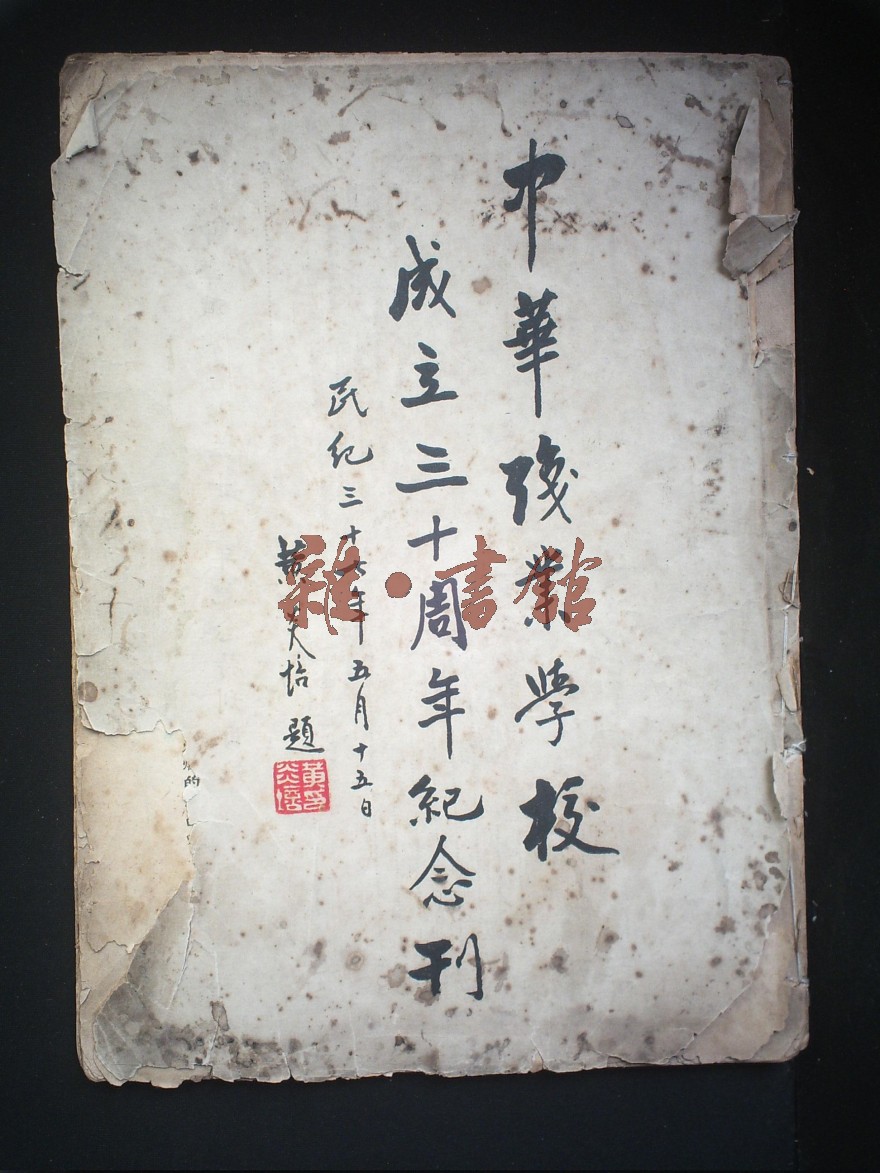 中華職業學校
成立三十周年紀念刊
民紀三十七年五月十五日
黃炎培題
黃印
炎培
雜·書館
的